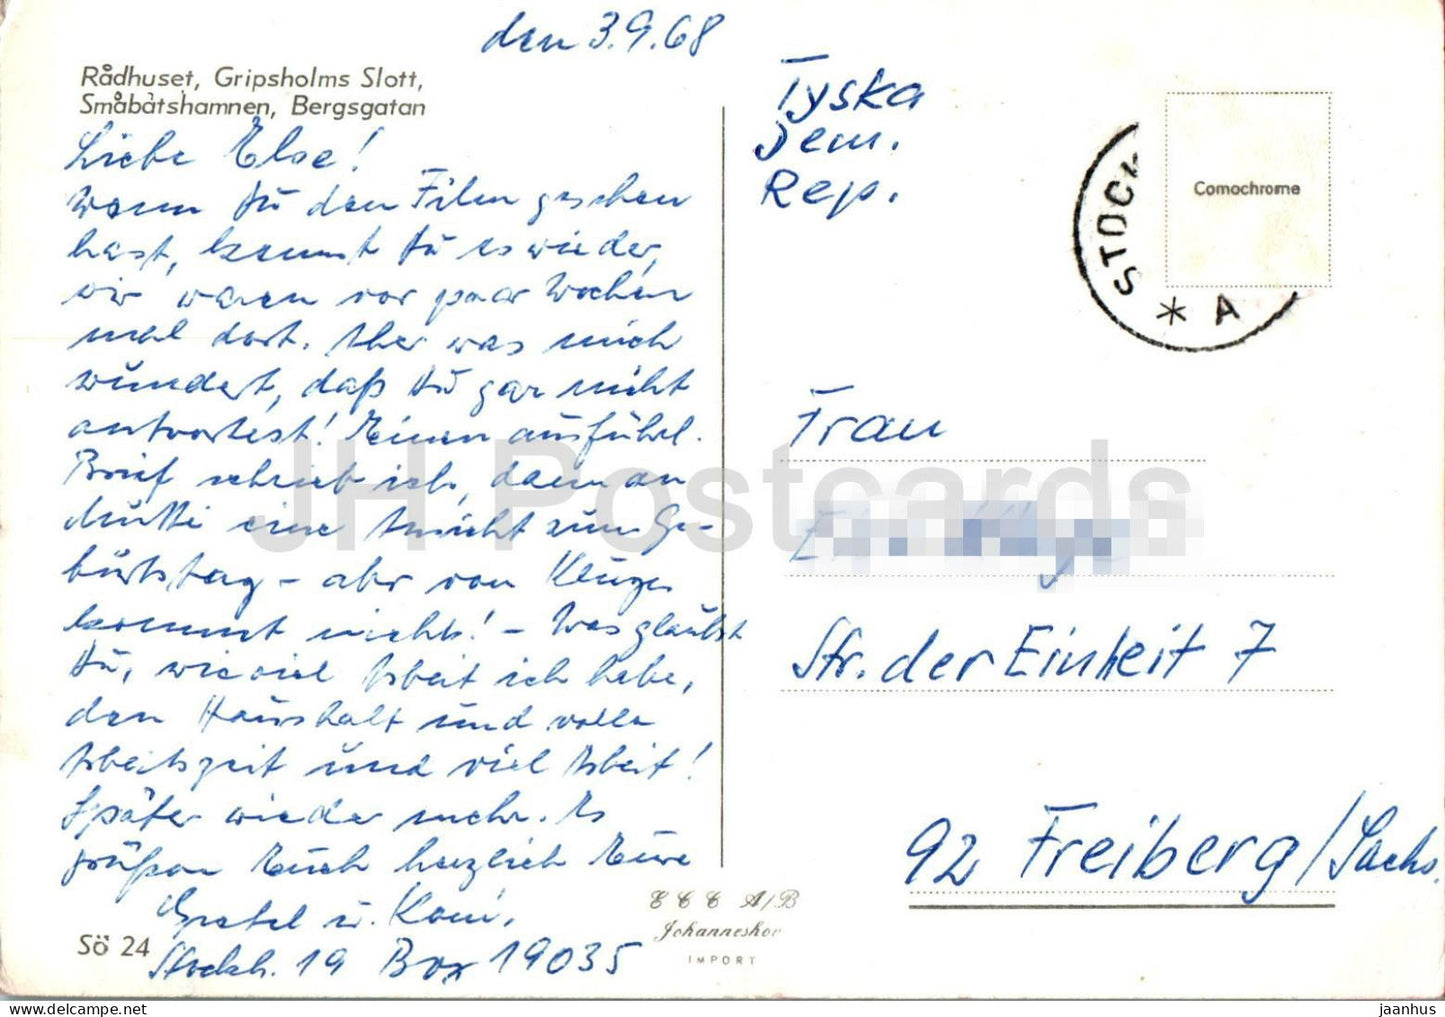 den 3.9.68
Rådhuset, Gripsholms Slott,
Småbåtshamnen, Bergsgatan
Liebe Else!
Wenn Du den Film gesehen
hast, kennst Du es wieder,
wir waren vor paar Wochen
mal dort. Aber was mich
wundert, daß Du gar nicht
antwortest! Einen ausführl.
Brief schrieb ich, dann an
Mutti eine Ansicht zum Ge-
burtstag - aber von Kluges
kommt nichts! - Was glaubst
Du, wieviel Arbeit ich habe,
den Haushalt und volle
Arbeitszeit und viel Arbeit!
Später wieder mehr. Es
grüßen Euch herzlich Eure
Gretel u.
Stockh. 19 Box 19035
Sö 24
Tyska
Dem.
Rep.
STOCK
* A
Comochrome
Frau
Str. der Einheit 7
92 Freiberg/Sachs.
A/B
Johanneshov
IMPORT
JH Postcards
jaanhus